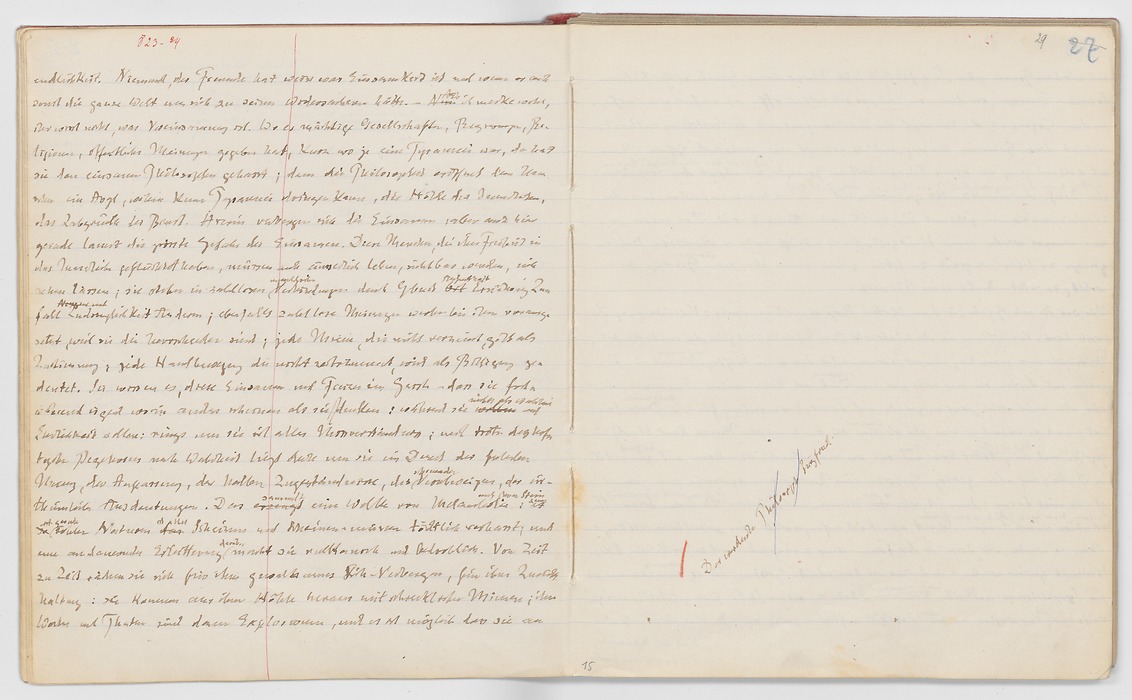 §23-24
endlichkeit. Niemand, der Freunde hat weiss was Einsamkeit ist und wenn er auch
sonst die ganze Welt um sich zu seinen Widersachern hätte. – Ach ich merke wohl,
ihr wisst nicht, was Vereinsamung ist. Wo es mächtige Gesellschaften, Regierungen, Re-
ligionen, öffentliche Meinungen gegeben hat, kurz wo je eine Tyrannei war, da hat
sie den einsamen Philosophen gehasst; denn die Philosophie eröffnet dem Men
schen ein Asyl, wohin keine Tyrannei dringen kann, die Höhle des Innerlichen,
das Labyrinth der Brust. Hierin verbergen sich die Einsamen, aber auch hier
gerade lauert die grösste Gefahr der Einsamen. Diese Menschen, die ihre Freiheit in
das Innerliche geflüchtet haben, müssen auch äusserlich leben, sichtbar werden, sich
sehen lassen; sie stehen in zahllosen menschlichen Verbindungen durch Geburt Aufenthalt Ort Erziehung Zu
fall Zudringlichkeit Anderer; ebenfalls zahllose Meinungen werden bei ihnen vorausge
setzt, weil sie die herrschenden sind; jede Miene, die nicht verneint, gilt als
Zustimmung; jede Handbewegung die nicht zertrümmert, wird als Billigung ge
deutet. Sie wissen es, diese Einsamen und Freien im Geiste – dass sie fort
während irgend worin anders scheinen als sie denken: während sie nichts als Wahrheit und
Ehrlichkeit wollen: rings um sie ist alles Missverständniss;
der Anpassung, der halben Zugeständnisse, des Verschweigens, der irr-
thümlichen Ausdeutungen. Das sammelt eine Wolke von Melancholie
Naturen das Scheinen tödtlich verhasst; und
eine andauernde Erbitterung darüber macht sie vulkanisch und bedrohlich. Von Zeit
zu Zeit rächen sie sich für ihr gewaltsames Sich-Verbergen, für ihre Zurück
haltung: sie kommen aus ihrer Höhle heraus mit schrecklichen Mienen; ihre
Worte und Thaten sind dann Explosionen, und es ist möglich dass sie an
29
27
Der
15